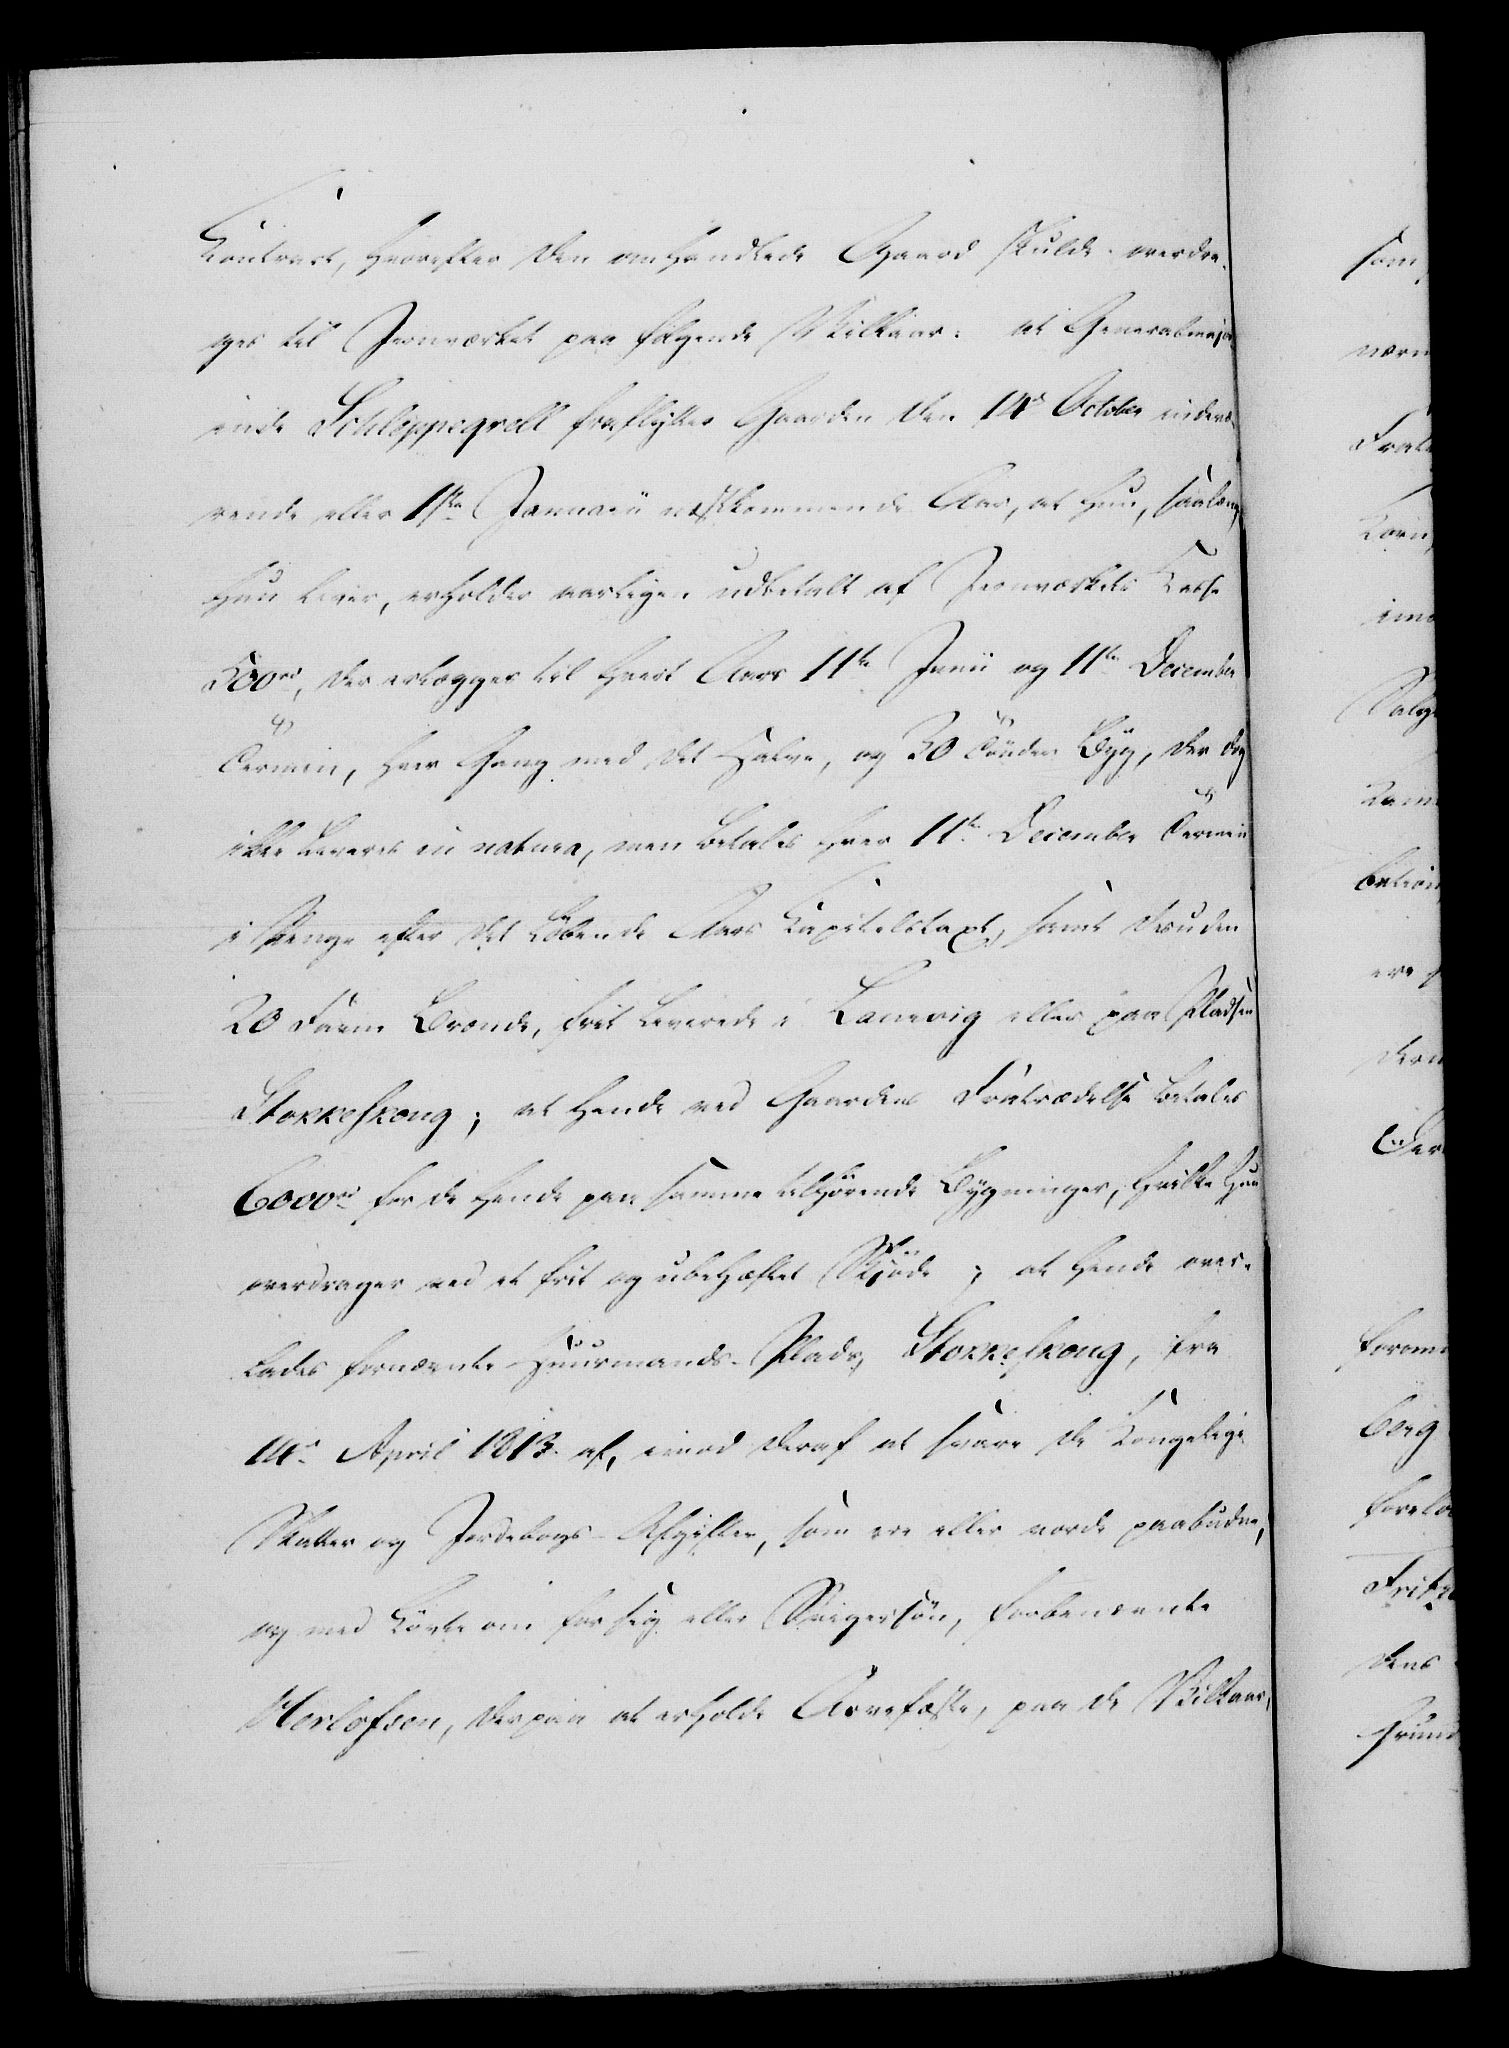 Kontract, hvorefter den omhandlede Gaard skulde overdra-
ges til Jernværket paa følgende Vilkaar: at Generalmajor-
inde Schleppegrell fraflytter Gaarden den 14de October indevæ-
rende eller 1ste Januarii næstkommende Aar, at hun, saalænge
hun lever, erholder aarligen udbetalt af Jernværkets Kasse
500rd, der erlægges til hvert Aars 11te Junii og 11te December
Termin, hver Gang med det Halve, og 30 Tønder Byg, der dog
ikke leveres in natura, men betales hver 11te December Termin
i Penge efter det løbende Aars Kapitelstaxt, samt desuden
20 Favne Brænde, frit leverede i Langvig eller paa Pladsen
Stokkeskoug; at hende ved Gaardens Fratrædelse betales
6000rd for de hende paa samme tilhørende Bygninger, hvilke hun
overdrager ved et frit og ubehæftet Skjøde; at hende over-
lades fornævnte Huusmands-Plads, Stokkeskoug, fra
14de April 1813 af, imod deraf at svare de Kongelige
Skatter og Jordebogs-Afgifter, som ere eller vorde paabudne,
og med Løvte om for sig eller Svigersøn, forbenævnte
Herlofsen, derpaa at erholde Arvefæste, paa de Vilkaar,